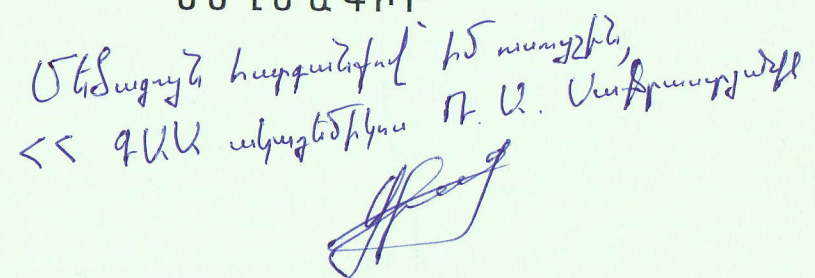 Մեծագույն հարգանքով՝ իմ ուսուցչին,
ՀՀ ԳԱԱ ակադեմիկոս Ռ. Ա. Սաֆրաստյանին